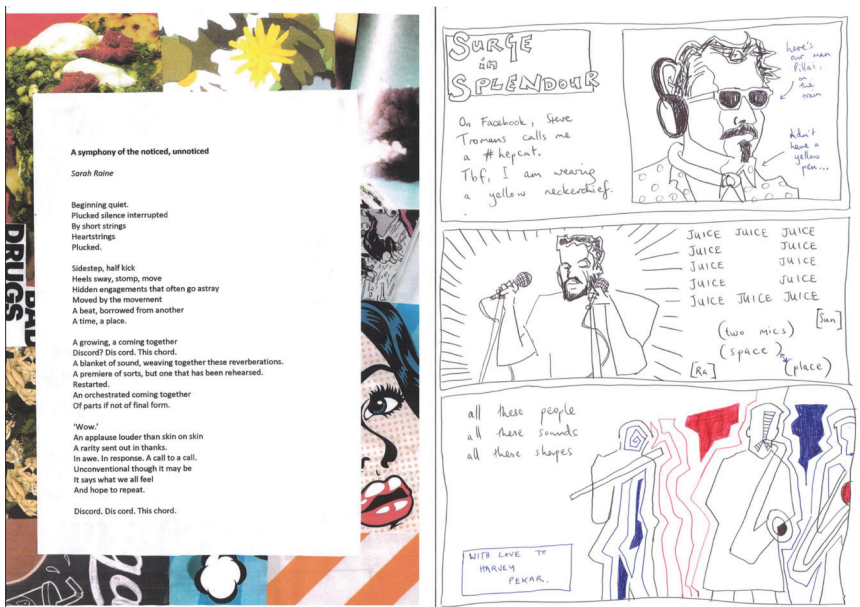 A symphony of the noticed, unnoticed
Sarah Raine
Beginning quiet.
Plucked silence interrupted
By short strings
Heartstrings
Plucked.
Sidestep, half kick
Heels sway, stomp, move
Hidden engagements that often go astray
Moved by the movement
A beat, borrowed from another
A time, a place.
A growing, a coming together
Discord? Dis cord. This chord.
A blanket of sound, weaving together these reverberations.
A premiere of sorts, but one that has been rehearsed.
Restarted.
An orchestrated coming together
Of parts if not of final form.
'Wow.'
An applause louder than skin on skin
A rarity sent out in thanks.
In awe. In response. A call to a call.
Unconventional though it may be
It says what we all feel
And hope to repeat.
Discord. Dis cord. This chord.
DRUGS
BAD
SURGE
in
SPLENDOUR
On Facebook, Steve
Tromans calls me
a #hepcat.
Tbf, I am wearing
a yellow neckerchief.
here's
our man
Pillai.
on
the
train
didn't
have a
yellow
pen...
JUICE JUICE JUICE
JUICE JUICE
JUICE JUICE
JUICE JUICE
JUICE JUICE JUICE
[Sun]
(two mics)
(space)
(place)
[Ra]
all these people
all these sounds
all these shapes
WITH LOVE TO
HARVEY
PEKAR.